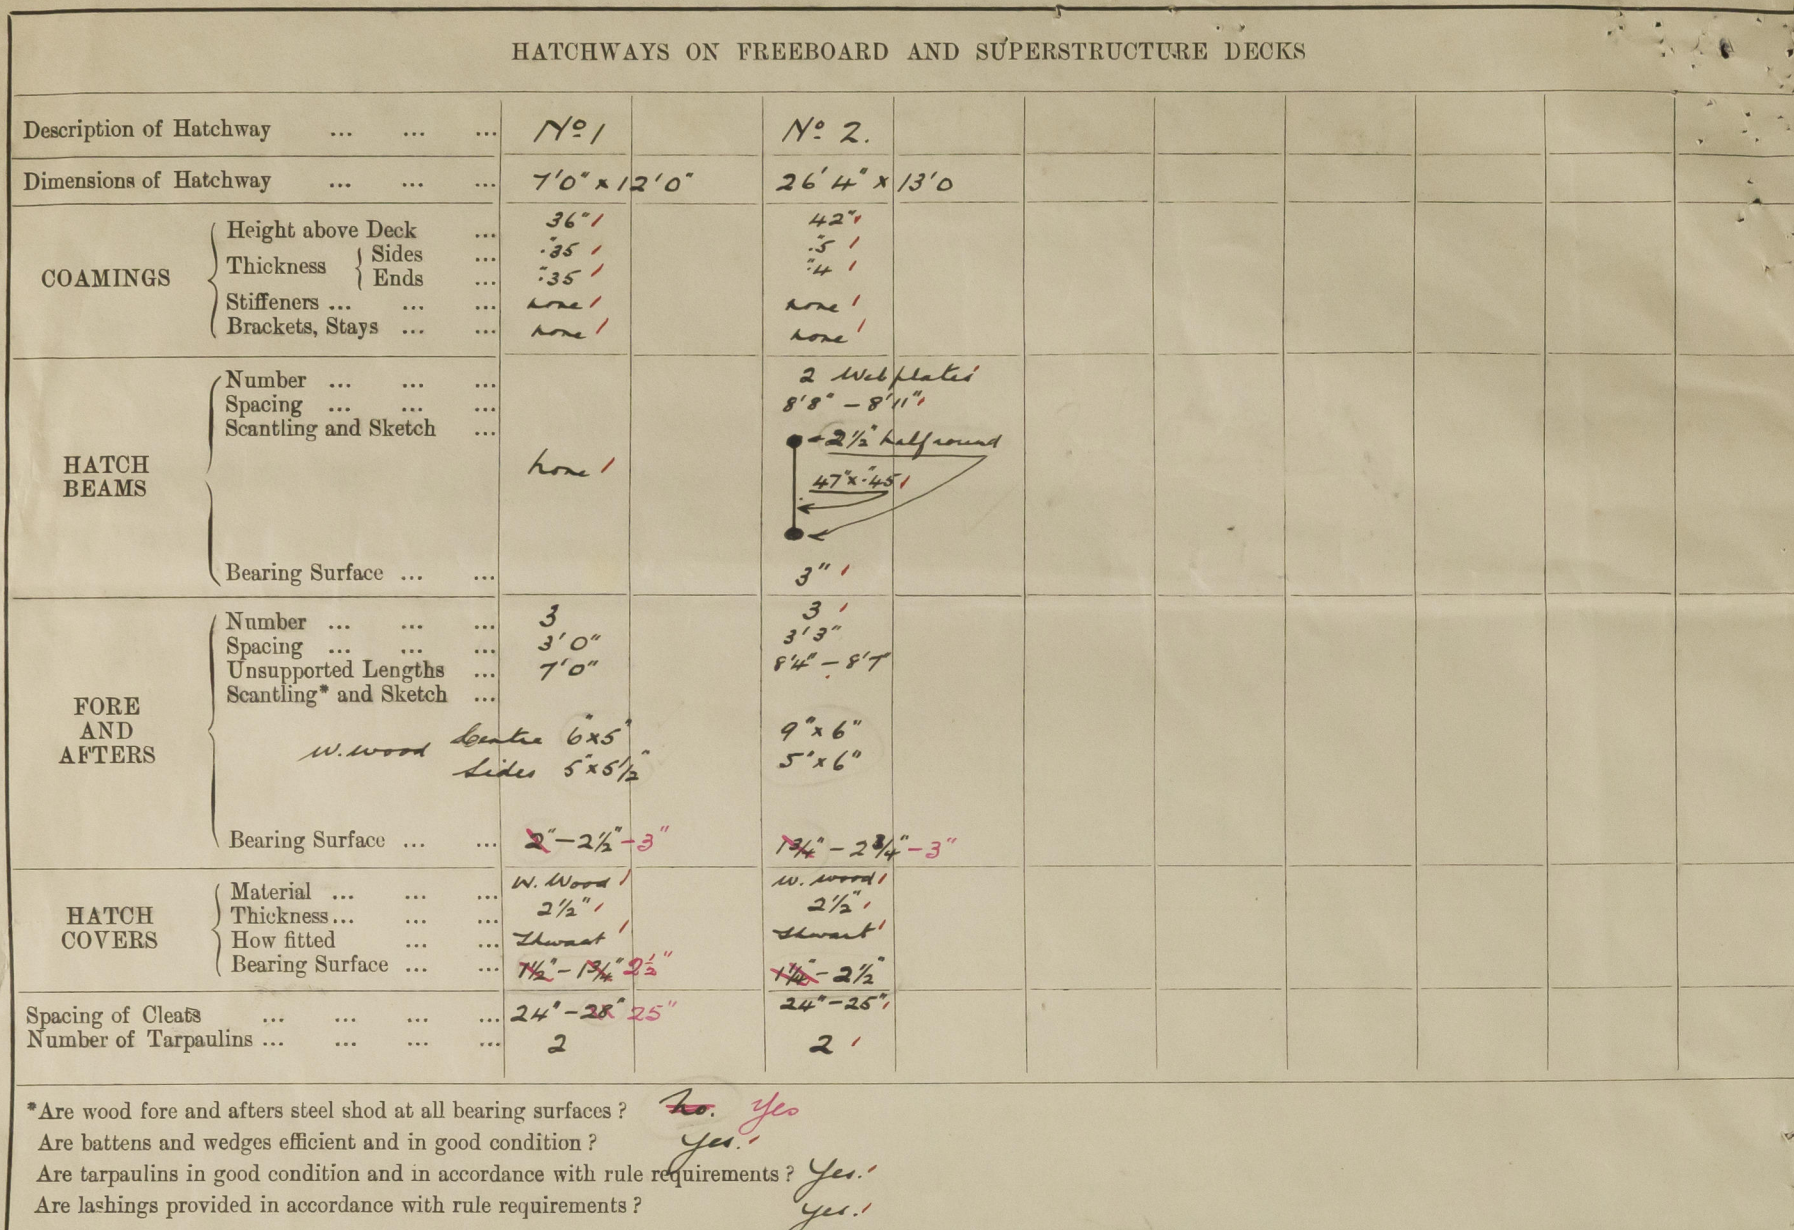 HATCHWAYS ON FREEBOARD AND SUPERSTRUCTURE DECKS
Description of Hatchway ... ... ... Nº 1 Nº 2.
Dimensions of Hatchway ... ... ... 7'0" x 12'0" 26'4" x 13'0
COAMINGS
Height above Deck ... 36" 42"
Thickness
Sides ... ·35" ·5"
Ends ... ·35" ·4"
Stiffeners ... ... ... none none
Brackets, Stays ... ... none none
HATCH BEAMS
Number ... ... ... 2 Web plates
Spacing ... ... ... 8'8" – 8'11"
Scantling and Sketch ... none 2½" half round
47" x ·45"
Bearing Surface ... ... 3"
FORE AND AFTERS
Number ... ... ... 3 3
Spacing ... ... ... 3'0" 3'3"
Unsupported Lengths ... 7'0" 8'4" – 8'7"
Scantling* and Sketch ...
W. wood Centre 6" x 5" 9" x 6"
Sides 5" x 5½" 5" x 6"
Bearing Surface ... ... 2" – 2½" – 3" 1¾" – 2¾" – 3"
HATCH COVERS
Material ... ... ... W. Wood W. wood
Thickness... ... ... 2½" 2½"
How fitted ... ... Thwart Thwart
Bearing Surface ... ... 1½" – 1¾" 2½" 1¼" – 2½"
Spacing of Cleats ... ... ... ... 24" – 28" 25" 24" – 25"
Number of Tarpaulins ... ... ... ... 2 2
*Are wood fore and afters steel shod at all bearing surfaces ? no. Yes
Are battens and wedges efficient and in good condition ? Yes.
Are tarpaulins in good condition and in accordance with rule requirements ? Yes.
Are lashings provided in accordance with rule requirements ? Yes.